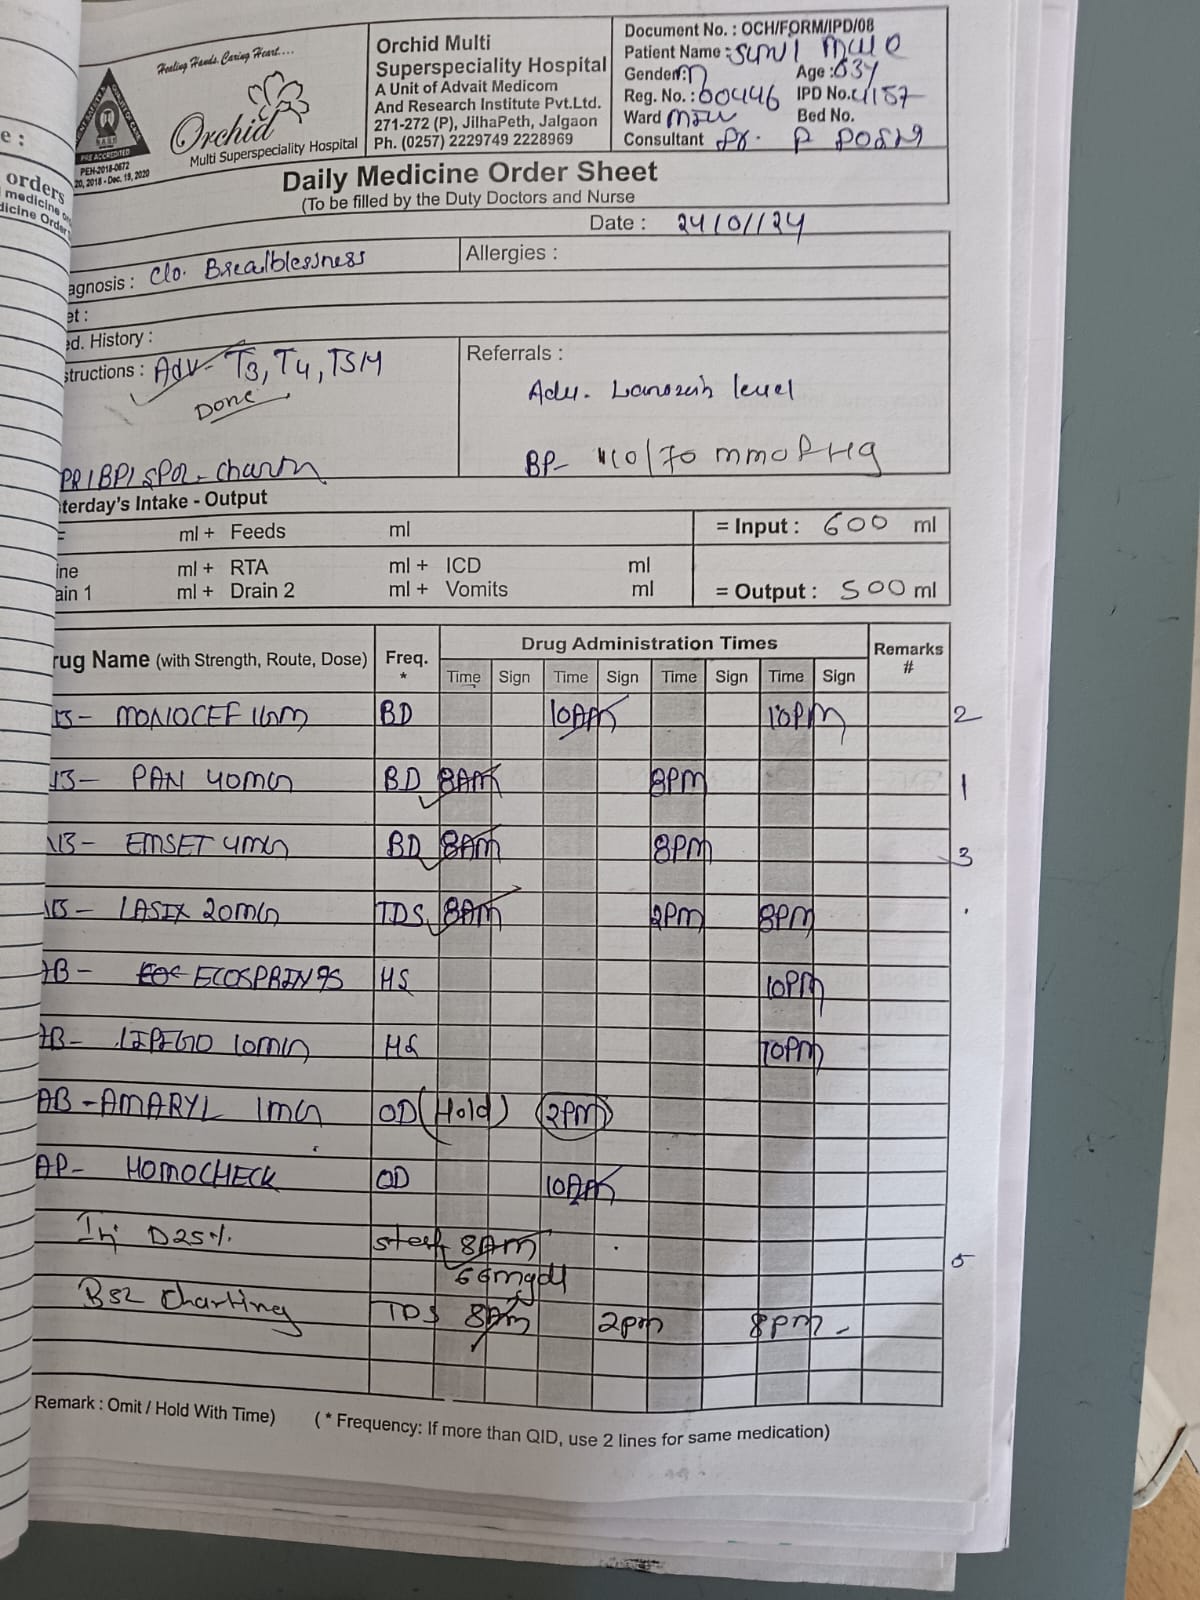 Healing Hands, Caring Heart....
Orchid
Multi Superspeciality Hospital
PRE ACCREDITED
PEH-2018-0672
20, 2018 - Dec. 19, 2020
Orchid Multi
Superspeciality Hospital
A Unit of Advait Medicom
And Research Institute Pvt.Ltd.
271-272 (P), JilhaPeth, Jalgaon
Ph. (0257) 2229749 2228969
Document No. : OCH/FORM/IPD/08
Patient Name :
Gender : M Age :
Reg. No. : 60446 IPD No. 4157
Ward Bed No.
Consultant Dr. P
Daily Medicine Order Sheet
(To be filled by the Duty Doctors and Nurse
Date : 24/01/24
agnosis : C/o. Breathlessness
Allergies :
et :
ed. History :
structions : Adv- T3, T4, TSH
Done
PR/BP/SPO2 - Charm
Referrals :
Adv. level
BP- 110/70 mmofHg
terday's Intake - Output
ml + Feeds ml = Input : 600 ml
ine ml + RTA ml + ICD ml
ain 1 ml + Drain 2 ml + Vomits ml = Output : 500 ml
rug Name (with Strength, Route, Dose) Freq. * Drug Administration Times Remarks #
Time Sign Time Sign Time Sign Time Sign
MONOCEF 1Gm BD 10AM 10PM 2
PAN 40mG BD 8AM 8PM 1
EMSET 4mG BD 8AM 8PM 3
LASIX 20mG TDS 8AM 2PM 8PM
AB - ECOSPRIN 95 HS 10PM
AB - 10mG HS 10PM
AB - AMARYL 1mG OD (Hold) 2PM
AP- HOMOCHECK OD 10AM
Inj D25% 8AM 5
66mgdl
BSL Charting TDS 8Am 2pm 8pm -
Remark : Omit / Hold With Time) ( * Frequency: If more than QID, use 2 lines for same medication)
e :
orders